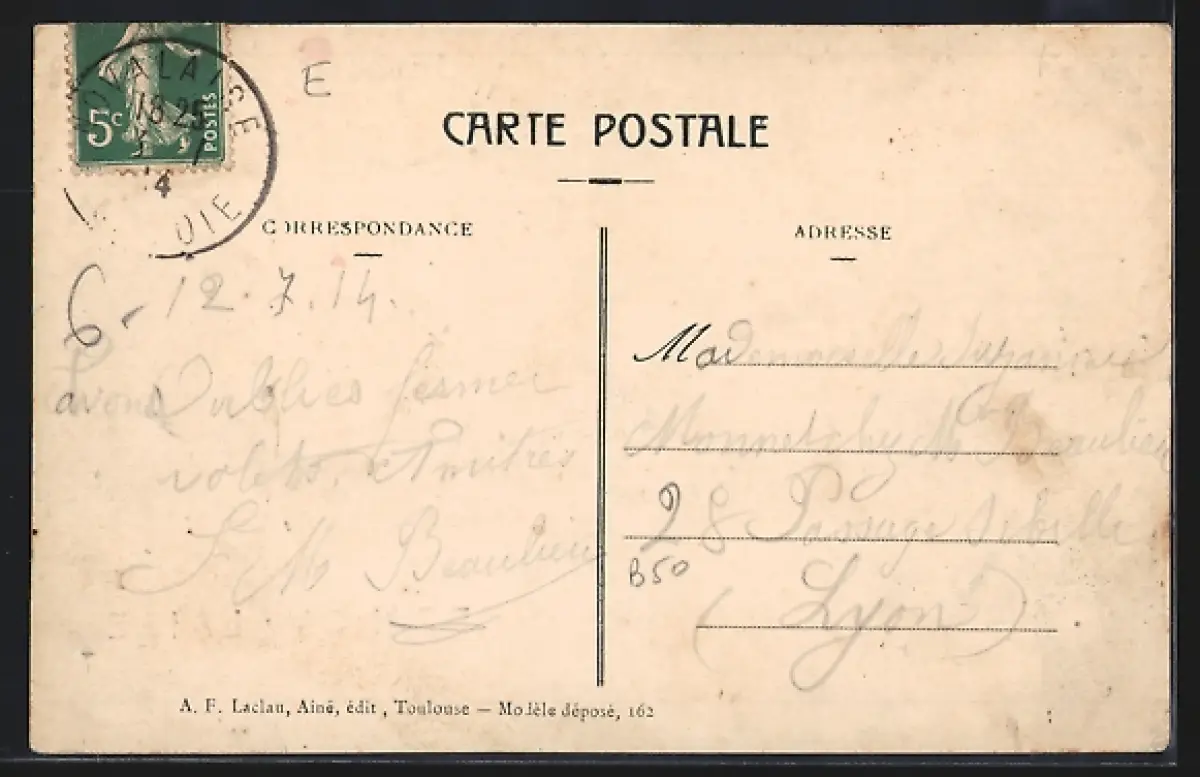 5c
POSTES
OVALAISE
18 25
4
OIE
E
CARTE POSTALE
CORRESPONDANCE
6 - 12.7.14.
avons oubliés fermer
volets. Amitiés
Beaulieu
ADRESSE
Mademoiselle
Beaulieu
28 Passage
B50
(Lyon)
A. F. Laclau, Ainé, édit, Toulouse — Modèle déposé, 162